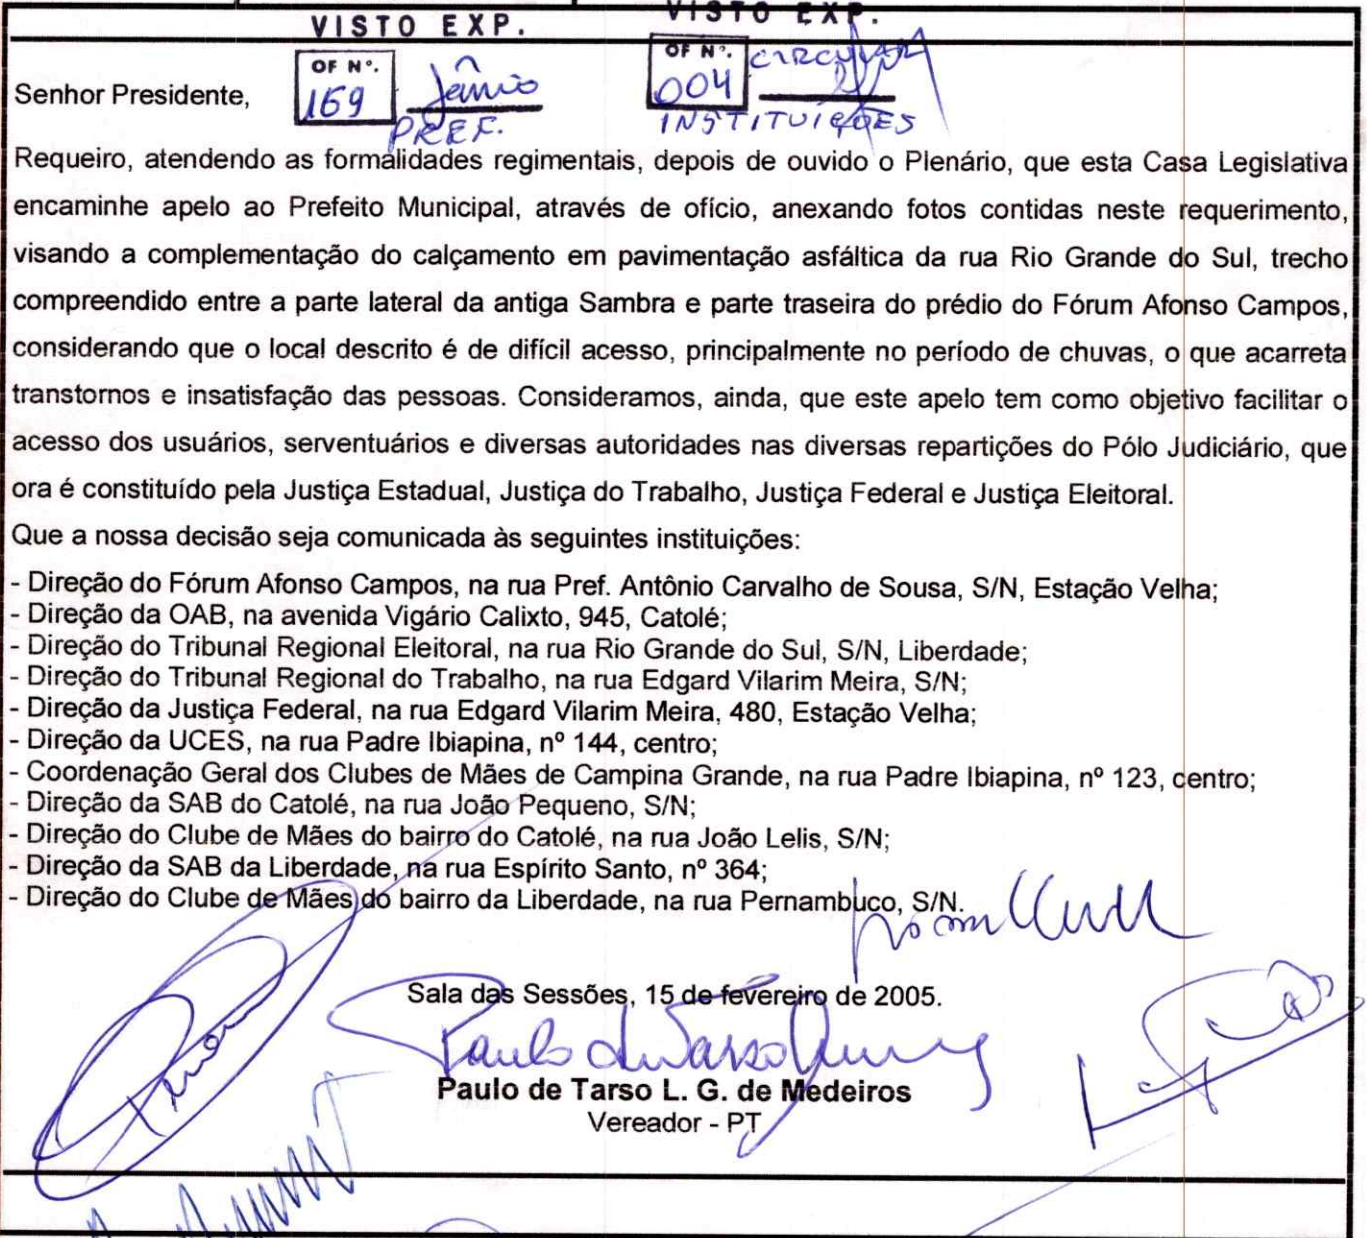 VISTO EXP. VISTO EXP.
OF Nº. 169 Jânio PREF.
OF Nº. 004 CIRCULAR INSTITUIÇÕES
Senhor Presidente,
Requeiro, atendendo as formalidades regimentais, depois de ouvido o Plenário, que esta Casa Legislativa
encaminhe apelo ao Prefeito Municipal, através de ofício, anexando fotos contidas neste requerimento,
visando a complementação do calçamento em pavimentação asfáltica da rua Rio Grande do Sul, trecho
compreendido entre a parte lateral da antiga Sambra e parte traseira do prédio do Fórum Afonso Campos,
considerando que o local descrito é de difícil acesso, principalmente no período de chuvas, o que acarreta
transtornos e insatisfação das pessoas. Consideramos, ainda, que este apelo tem como objetivo facilitar o
acesso dos usuários, serventuários e diversas autoridades nas diversas repartições do Pólo Judiciário, que
ora é constituído pela Justiça Estadual, Justiça do Trabalho, Justiça Federal e Justiça Eleitoral.
Que a nossa decisão seja comunicada às seguintes instituições:
- Direção do Fórum Afonso Campos, na rua Pref. Antônio Carvalho de Sousa, S/N, Estação Velha;
- Direção da OAB, na avenida Vigário Calixto, 945, Catolé;
- Direção do Tribunal Regional Eleitoral, na rua Rio Grande do Sul, S/N, Liberdade;
- Direção do Tribunal Regional do Trabalho, na rua Edgard Vilarim Meira, S/N;
- Direção da Justiça Federal, na rua Edgard Vilarim Meira, 480, Estação Velha;
- Direção da UCES, na rua Padre Ibiapina, nº 144, centro;
- Coordenação Geral dos Clubes de Mães de Campina Grande, na rua Padre Ibiapina, nº 123, centro;
- Direção da SAB do Catolé, na rua João Pequeno, S/N;
- Direção do Clube de Mães do bairro do Catolé, na rua João Lelis, S/N;
- Direção da SAB da Liberdade, na rua Espírito Santo, nº 364;
- Direção do Clube de Mães do bairro da Liberdade, na rua Pernambuco, S/N.
Sala das Sessões, 15 de fevereiro de 2005.
Paulo de Tarso
Paulo de Tarso L. G. de Medeiros
Vereador - PT